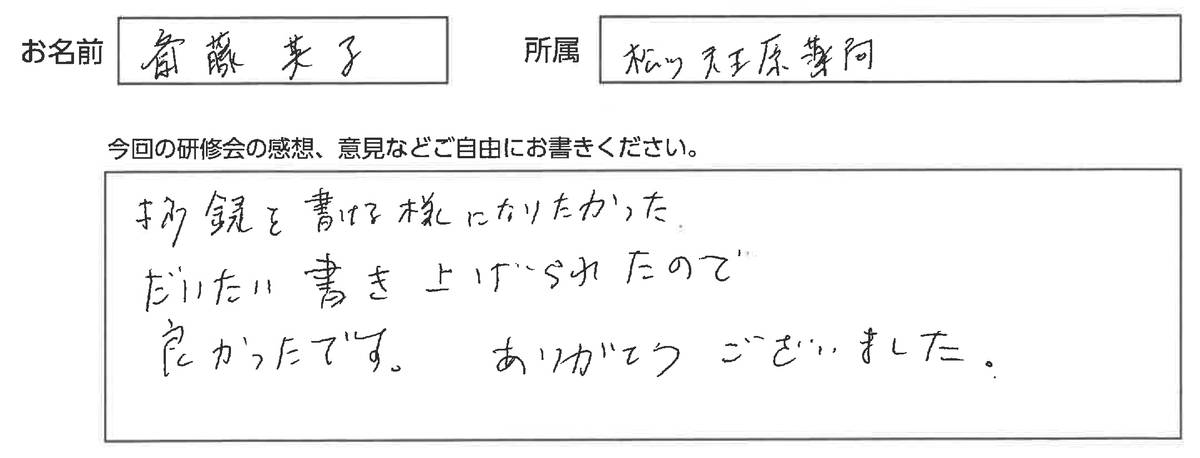 お名前 斎藤 英子 所属 松ノ天王原薬局
今回の研修会の感想、意見などご自由にお書きください。
抄録を書ける様になりたかった
だいたい書き上げられたので
良かったです。 ありがとうございました。